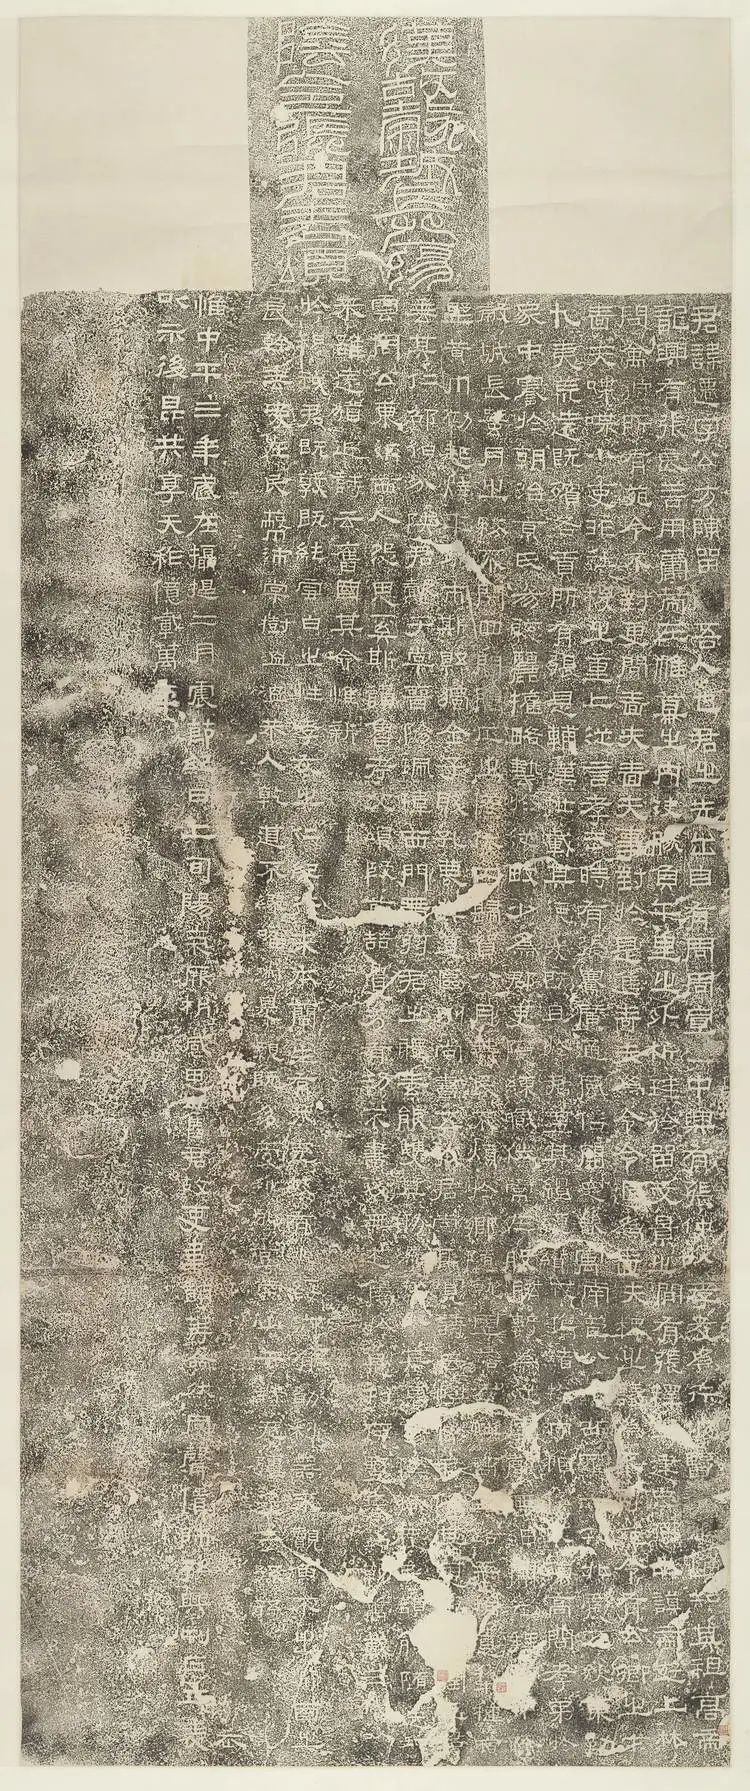 漢故穀城長蕩
陰令張君表頌
君諱遷字公方陳留己吾人也君之先出自有周周宣王中興有張仲以孝友為行披覽詩雅煥知其祖高帝
龍興有張良善用籌策在帷幕之內決勝負千里之外析珪於留文景之間有張釋之建忠弼之謨帝遊上林
問禽狩所有苑令不對更問嗇夫嗇夫事對於是進嗇夫為令令退為嗇夫釋之議為不可苑令有公卿之才
嗇夫喋喋小吏非社稷之重上從言孝武時有張騫廣通風俗開定畿寓南苞八蠻西羈六戎北震五狄東勤
九夷荒遠既殯各貢所有張是輔漢世載其德爰既且於君蓋其繵縺纘戎鴻緒牧守相係不殞高問孝弟於
家中謇於朝治京氏易聰麗權略藝於從畋少為郡吏隱練職位常在股肱數為從事聲無細聞徵拜郎中除
穀城長蠶月之務不閉四門臘正之僚休囚歸賀八月算民不煩於鄉隨就虛落存恤高年路無拾遺犁種宿
野黃巾初起燒平城市斯縣獨全子賤孔蔑其道區別尚書五教君崇其寬詩云愷悌君隆其恩東里潤色君
垂其仁邵伯分陝君懿于棠晉陽珮瑋西門帶弦君之體素能雙其勛流化八基遷蕩陰令吏民頡頏隨送如
雲周公東征西人怨思奚斯讚魯考父頌殷前喆遺芳有功不書後無述焉於是刊石豎表銘勒萬載三代以
來雖遠猶近詩云舊國其命惟新
於穆我君既敦既純雪白之性孝友之仁紀行來本蘭生有芬克岐有兆綏御有勛利器不覿魚不出淵國之
良幹垂愛在民蔽沛棠樹溫溫恭人乾道不繆唯淑是親既多受祉永享南山干祿無疆子子孫孫
惟中平三年歲在攝提二月震節紀日上旬陽氣厥析感思舊君故吏韋萌等僉然同聲賃師孫興刊石立表
以示後昆共享天祚億載萬年